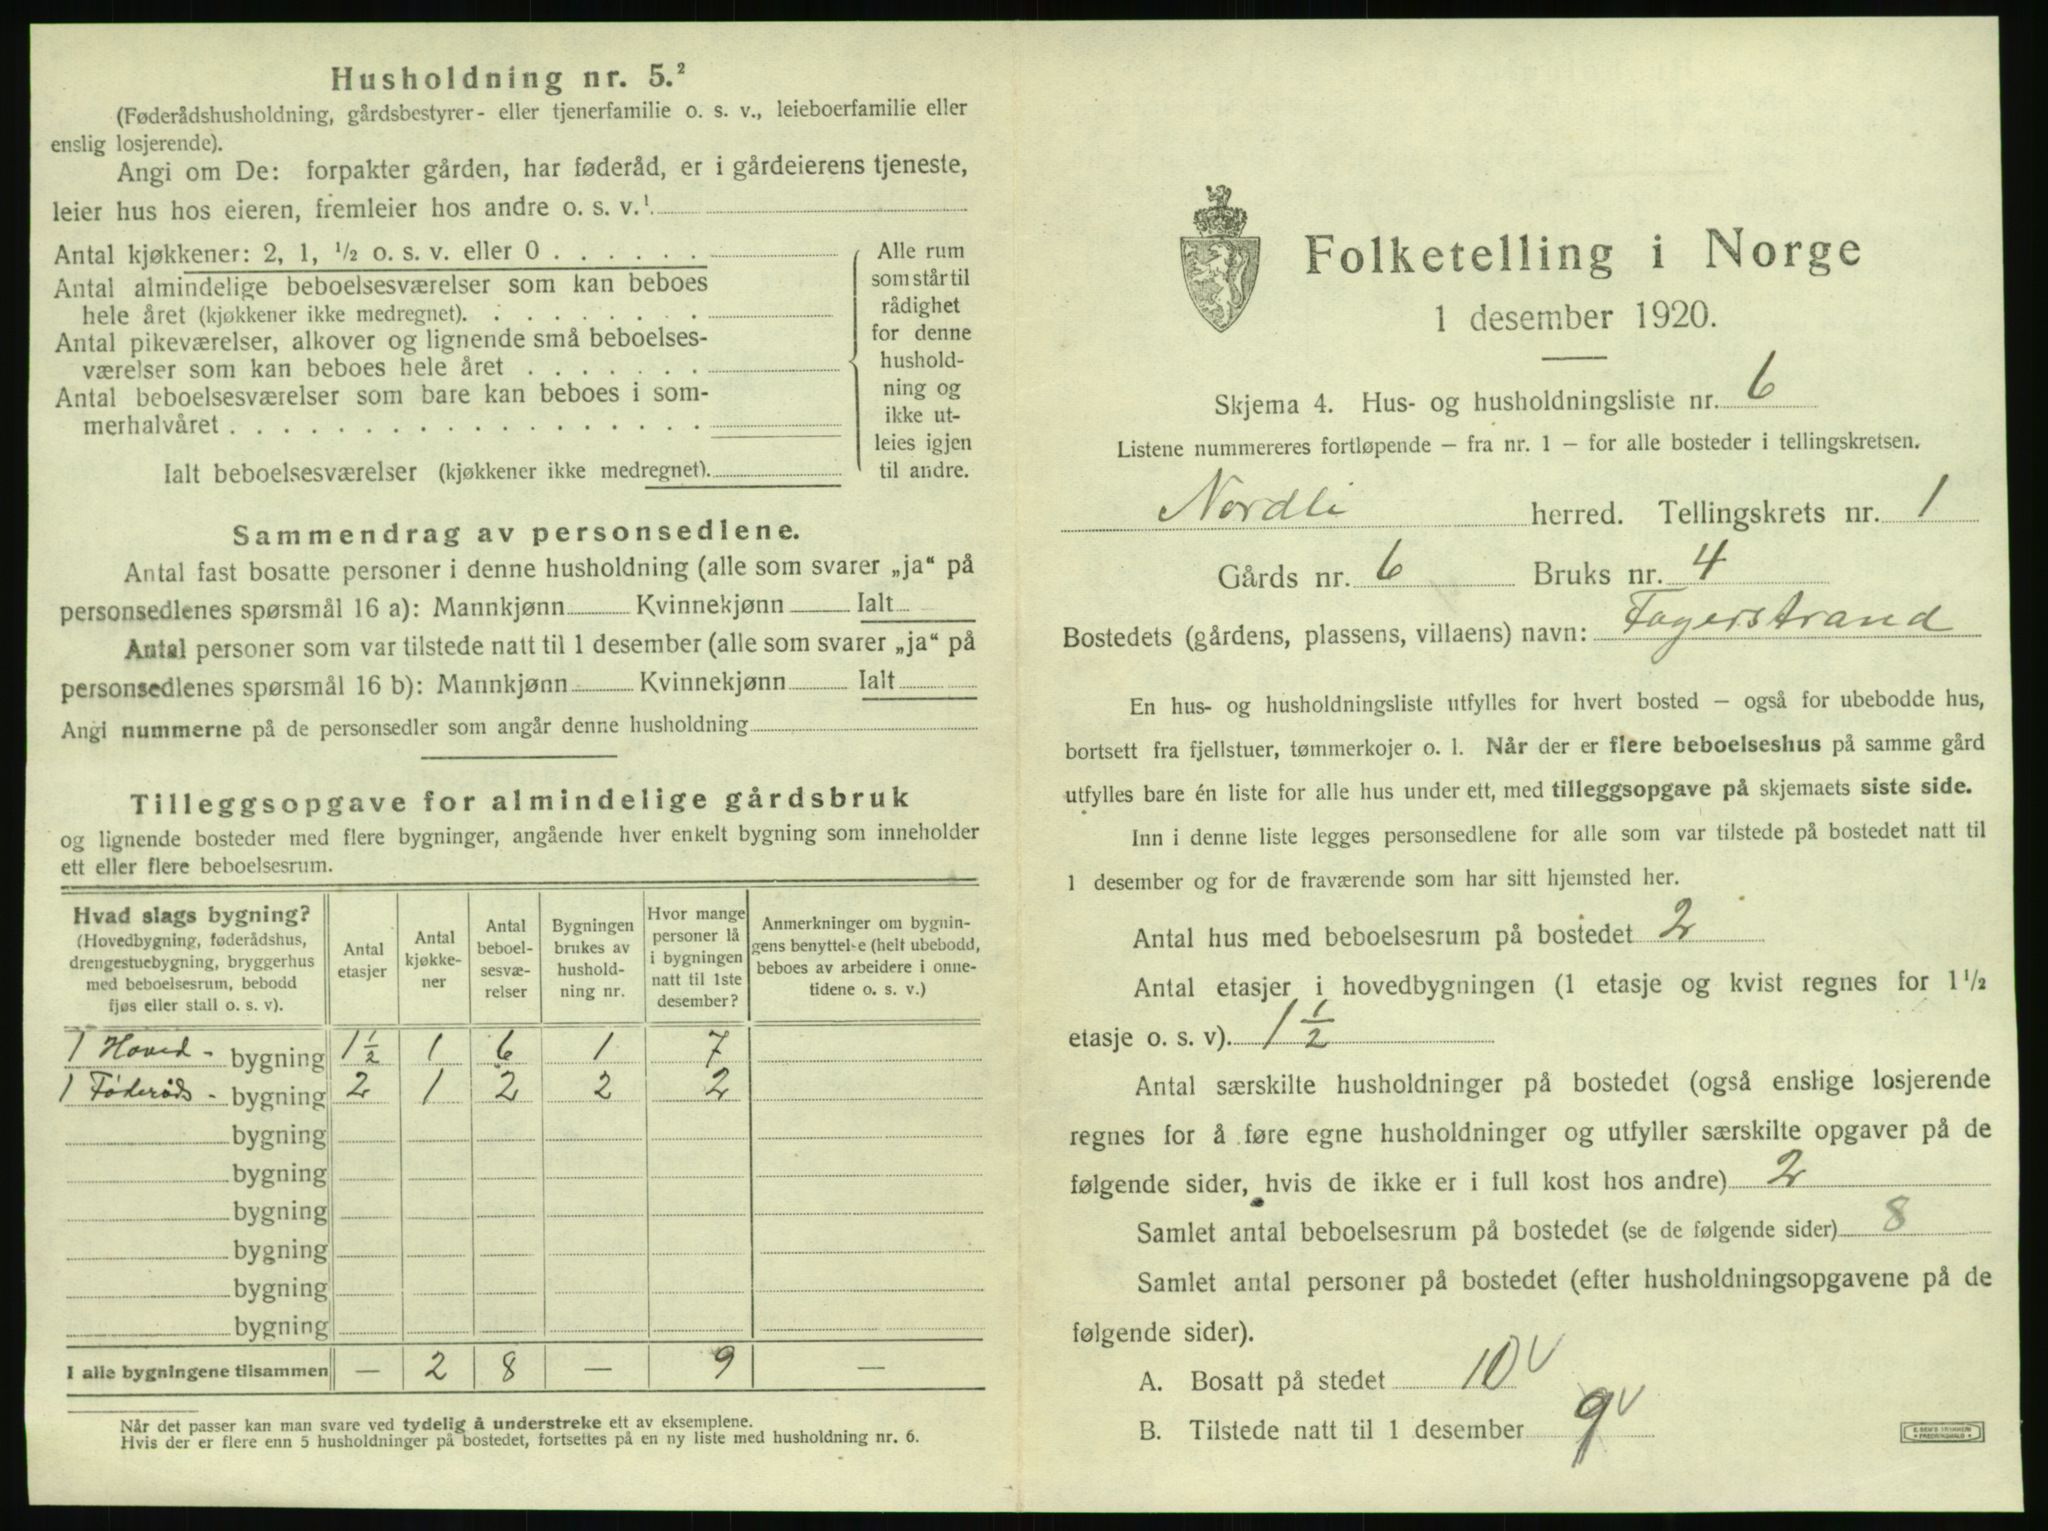 Husholdning nr. 5.²
(Føderådshusholdning, gårdsbestyrer- eller tjenerfamilie o. s. v., leieboerfamilie eller
enslig losjerende).
Angi om De: forpakter gården, har føderåd, er i gårdeierens tjeneste,
leier hus hos eieren, fremleier hos andre o. s. v.¹
Antal kjøkkener: 2, 1, ½ o. s. v. eller 0 . . . . . .
Antal almindelige beboelsesværelser som kan beboes
hele året (kjøkkener ikke medregnet). . . . . . . . .
Antal pikeværelser, alkover og lignende små beboelses-
værelser som kan beboes hele året . . . . . . .
Antal beboelsesværelser som bare kan beboes i som-
merhalvåret . . . . . . . . . . . . . . . . . .
Ialt beboelsesværelser (kjøkkener ikke medregnet).
Alle rum
som står til
rådighet
for denne
hushold-
ning og
ikke ut-
leies igjen
til andre.
Sammendrag av personsedlene.
Antal fast bosatte personer i denne husholdning (alle som svarer „ja“ på
personsedlenes spørsmål 16 a): Mannkjønn Kvinnekjønn Ialt
Antal personer som var tilstede natt til 1 desember (alle som svarer „ja“ på
personsedlenes spørsmål 16 b): Mannkjønn Kvinnekjønn Ialt
Angi nummerne på de personsedler som angår denne husholdning
Tilleggsopgave for almindelige gårdsbruk
og lignende bosteder med flere bygninger, angående hver enkelt bygning som inneholder
ett eller flere beboelsesrum.
Hvad slags bygning?
(Hovedbygning, føderådshus,
drengestuebygning, bryggerhus
med beboelsesrum, bebodd
fjøs eller stall o. s. v).
Antal
etasjer
Antal
kjøkke-
ner
Antal
beboel-
sesvæ-
relser
Bygningen
brukes av
hushold-
ning nr.
Hvor mange
personer lå
i bygningen
natt til 1ste
desember?
Anmerkninger om bygnin-
gens benyttelse (helt ubebodd,
beboes av arbeidere i onne-
tidene o. s. v.)
1 Hoved- bygning 1½ 1 6 1 7
1 Føderåds- bygning 2 1 2 2 2
bygning
bygning
bygning
bygning
bygning
bygning
I alle bygningene tilsammen — 2 8 — 9 —
Når det passer kan man svare ved tydelig å understreke ett av eksemplene.
Hvis der er flere enn 5 husholdninger på bostedet, fortsettes på en ny liste med husholdning nr. 6.
Folketelling i Norge
1 desember 1920.
Skjema 4. Hus- og husholdningsliste nr. 6
Listene nummereres fortløpende – fra nr. 1 – for alle bosteder i tellingskretsen.
Nordli herred. Tellingskrets nr. 1
Gårds nr. 6 Bruks nr. 4
Bostedets (gårdens, plassens, villaens) navn: Fagerstrand
En hus- og husholdningsliste utfylles for hvert bosted – også for ubebodde hus,
bortsett fra fjellstuer, tømmerkojer o. l. Når der er flere beboelseshus på samme gård
utfylles bare én liste for alle hus under ett, med tilleggsopgave på skjemaets siste side.
Inn i denne liste legges personsedlene for alle som var tilstede på bostedet natt til
1 desember og for de fraværende som har sitt hjemsted her.
Antal hus med beboelsesrum på bostedet 2
Antal etasjer i hovedbygningen (1 etasje og kvist regnes for 1½
etasje o. s. v). 1½
Antal særskilte husholdninger på bostedet (også enslige losjerende
regnes for å føre egne husholdninger og utfyller særskilte opgaver på de
følgende sider, hvis de ikke er i full kost hos andre) 2
Samlet antal beboelsesrum på bostedet (se de følgende sider) 8
Samlet antal personer på bostedet (efter husholdningsopgavene på de
følgende sider).
A. Bosatt på stedet 10 v
B. Tilstede natt til 1 desember 9 v